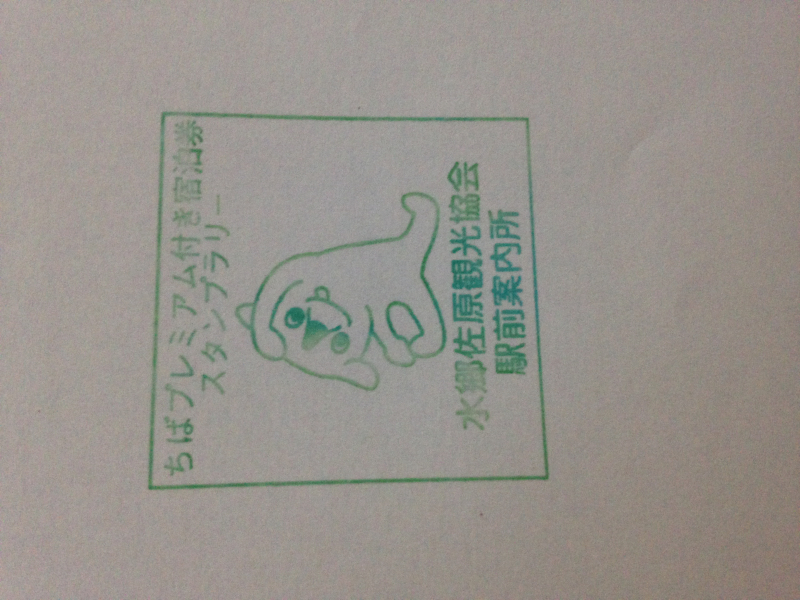 ちばプレミアム付き宿泊券
スタンプラリー
水郷佐原観光協会
駅前案内所